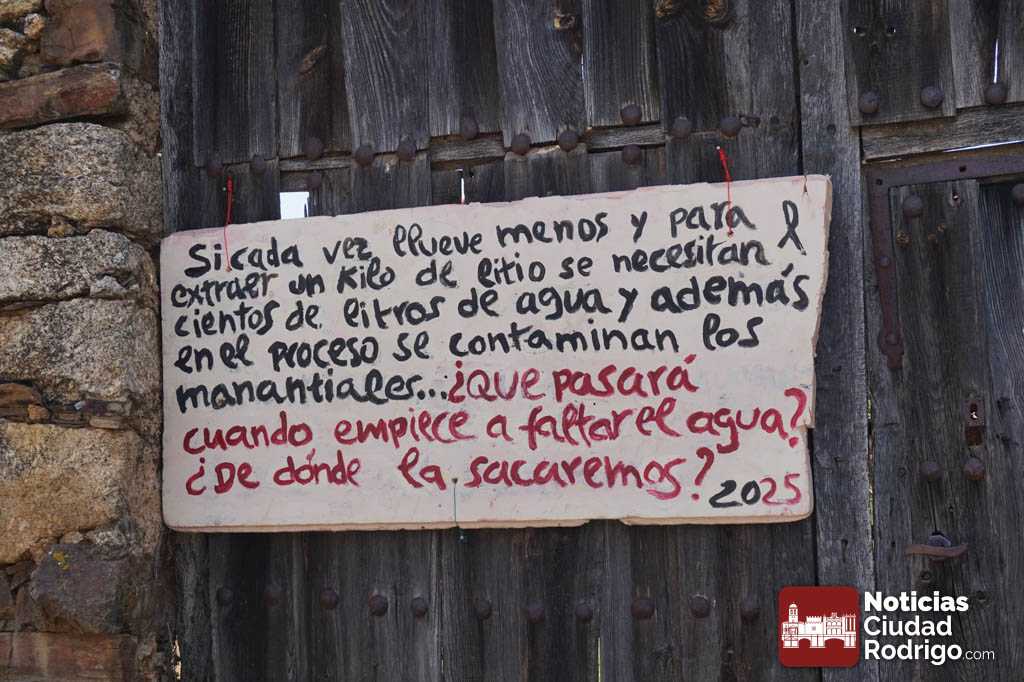 Si cada vez llueve menos y para
extraer un kilo de litio se necesitan
cientos de litros de agua y además
en el proceso se contaminan los
manantiales...¿QUE pasará
cuando empiece a faltar el agua?
¿De dónde la sacaremos? 2025
Noticias
Ciudad
Rodrigo.com